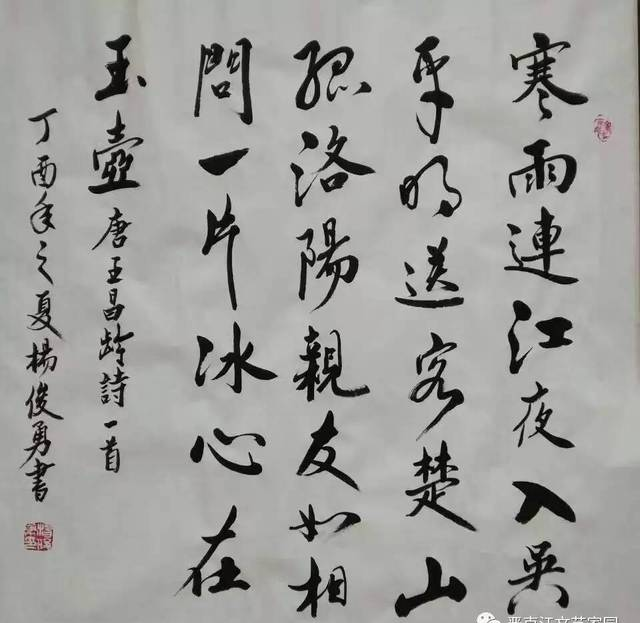 寒雨連江夜入吳
平明送客楚山
孤洛陽親友如相
問一片冰心在
玉壺唐王昌龄詩一首
丁酉年之夏楊俊勇書